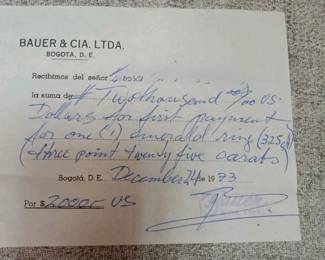 BAUER & CIA. LTDA.
BOGOTA, D. E.
Recibimos del señor
la suma de # Twothousend 00/00 US.
Dollars for first payment
for one (1) emerald ring (325c)
(three point twenty five carats)
Bogotá, D.E. December 24 de 1973
Por $ 2000.- US